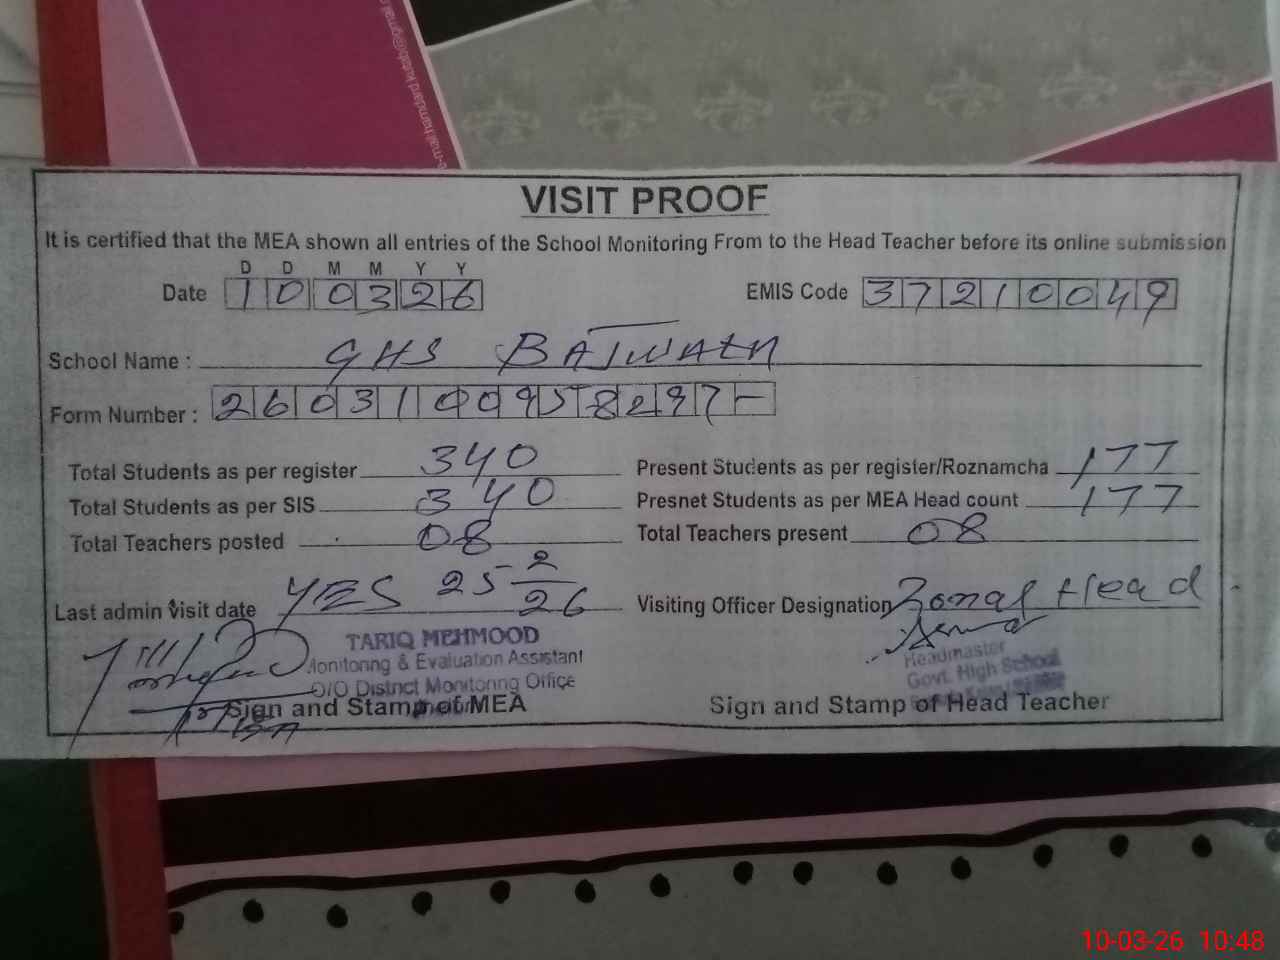 e-mail:hamdard.kutab@gmail.c
VISIT PROOF
It is certified that the MEA shown all entries of the School Monitoring From to the Head Teacher before its online submission
D D M M Y Y
Date 1 0 0 3 2 6 EMIS Code 3 7 2 1 0 0 4 9
School Name : GHS
Form Number : 2 6 0 3 1 0 0 9 5 8 2 9 7 -
Total Students as per register 340 Present Students as per register/Roznamcha 177
Total Students as per SIS 340 Presnet Students as per MEA Head count 177
Total Teachers posted 08 Total Teachers present 08
Last admin visit date YES 25 2/26 Visiting Officer Designation Zonal Head
TARIQ MEHMOOD
Monitoring & Evaluation Assistant
O/O District Monitoring Office
Headmaster
Govt. High School
Sign and Stamp of MEA Sign and Stamp of Head Teacher
10-03-26 10:48